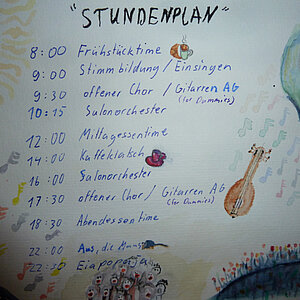 "STUNDENPLAN"
8:00 Frühstücktime
9:00 Stimmbildung / Einsingen
9:30 offener Chor / Gitarren AG
(for Dummies)
10:15 Salonorchester
12:00 Mittagessentime
14:00 Kaffeklatsch
16:00 Salonorchester
17:30 offener Chor / Gitarren AG
(for Dummies)
18:30 Abendessentime
22:00 Aus, die Maus
22:30 Eiapopeia